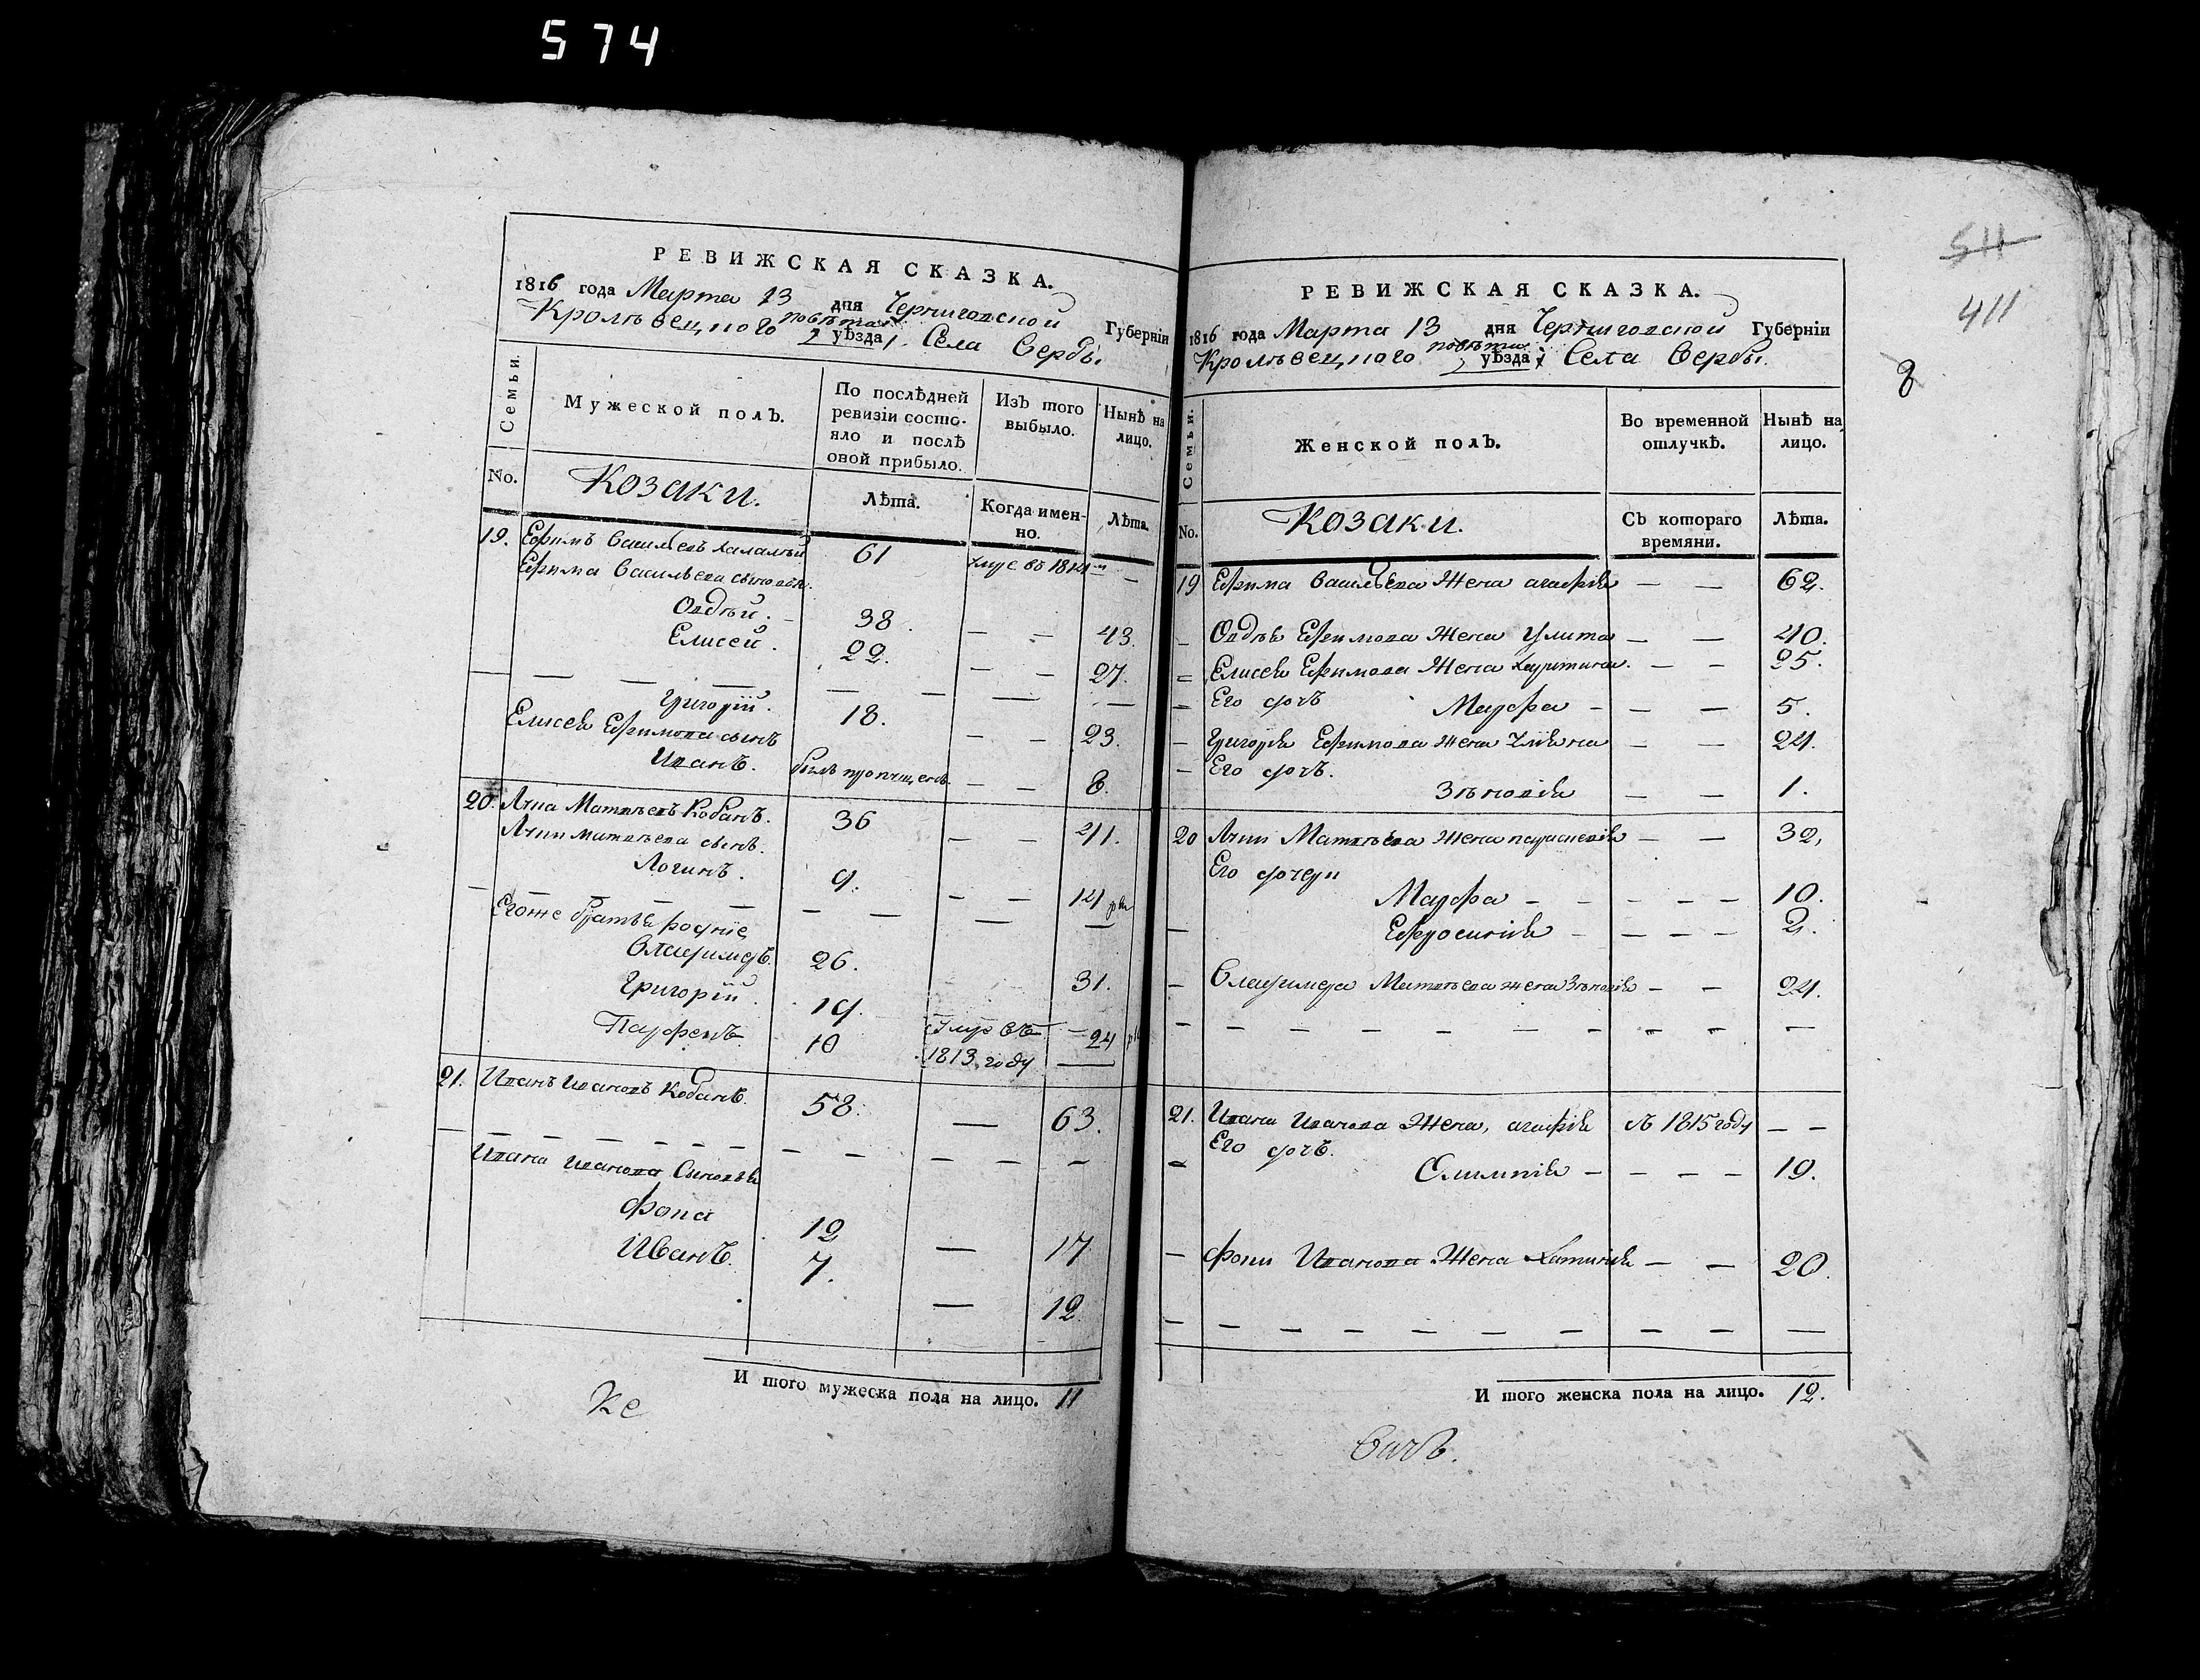 574
РЕВИЖСКАЯ СКАЗКА.
1816 года Марта 13 дня Черниговской Губерніи
Кролѣвецкого повѣта уѣзда Села Вербы
Семьи.
Мужеской полъ.
По послѣдней ревизіи состояло и послѣ оной прибыло.
Изъ того выбыло.
Нынѣ на лицо.
No.
Козаки.
Лѣта.
Когда именно.
Лѣта.
19. Ефимъ Васильевъ 61 умре въ 1814 —
Ефима Васильева сыновья
Овдѣй. 38. — — 43.
Елисей. 22. — — 27.
Григорій. 18. — — 23.
Елисея Ефимова сынъ
Иванъ. былъ пропущенъ — — 8.
20. Матвѣевъ Кобанъ. 36 — — 41.
Матвѣева сынъ.
Логинъ. 9. — — 14
Егоже братья родніе
Владимеръ. 26. 31.
Григорій. 19. — 24
Парфенъ 10 умре въ 1813 году —
21. Иванъ Ивановъ Кобанъ. 58. — 63.
Ивана Иванова Сыновья
Фома 12 — 17
Иванъ. 7. — 12
И того мужеска пола на лицо. 11
РЕВИЖСКАЯ СКАЗКА.
1816 года Марта 13 дня Черниговской Губерніи
Кролѣвецкого повѣта уѣзда Села Вербы.
Семьи.
Женской полъ.
Во временной отлучкѣ.
Нынѣ на лицо.
No.
Козаки.
Съ котораго времяни.
Лѣта.
19 Ефима Васильева Жена агафія — — 62.
— Овдѣя Ефимова Жена Улита — — 40.
— Елисея Ефимова Жена — — 25.
— Его дочь Марфа — — — 5.
— Григорія Ефимова Жена — — 24.
— Его дочь.
Зѣновія — — 1.
20 Матвѣева Жена параскевія — — 32,
Его дочери
Марфа — — — — — 10.
— Ефросинія — — — — 2.
— Владимера Матвѣева жена Зѣновія — — 24.
21. Ивана Иванова Жена, агафія 1815 году — —
— Его дочь.
Олимпія — — — — 19.
— Иванова Жена — — 20.
И того женска пола на лицо. 12.
511
411
8